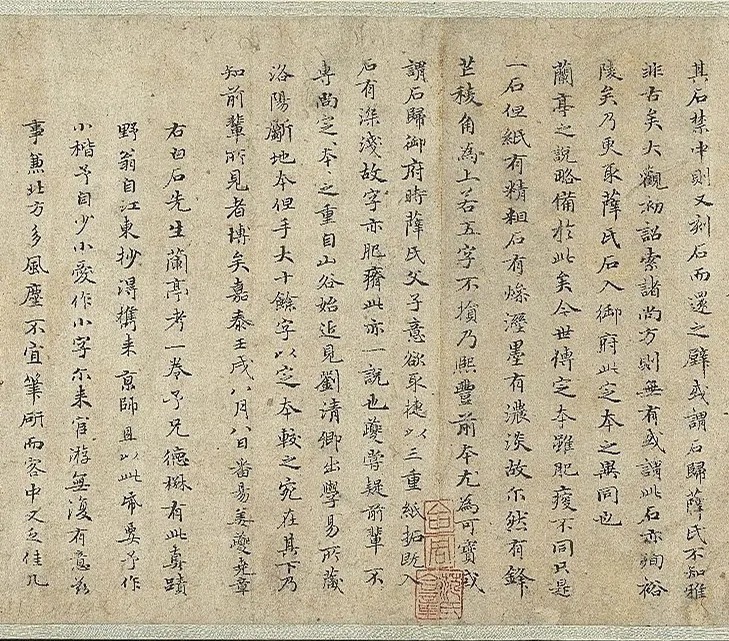 其石禁中則又刻石而還之壁或謂石歸薛氏不知雅
非古矣大觀初詔索諸尚方則無有或謂此石亦殉裕
陵矣乃更取薛氏石入御府此定本之異同也
蘭亭之說略備於此矣今世傳定本雖肥瘦不同只是
一石但紙有精粗石有燥溼墨有濃淡故尔然有鋒
芒稜角為上若五字不損乃熙豐前本尤為可寶或
謂石歸御府時薛氏父子意欲取捷以三重紙拓既入
石有深淺故字亦肥瘠此亦一說也夔嘗疑前輩不
專尚定本々之重自山谷始近見劉清卿出學易所藏
洛陽斷地本但手大十餘字以定本較之宛在其下乃
知前輩所見者博矣嘉泰壬戌八月八日番昜姜夔堯章
右白石先生蘭亭考一卷予兄德楙有此真蹟
野翁自江東抄得攜来京師且以此帋要予作
小楷予自少小愛作小字尔来官游無復有意茲
事兼北方多風塵不宜筆研而客中又乏佳几